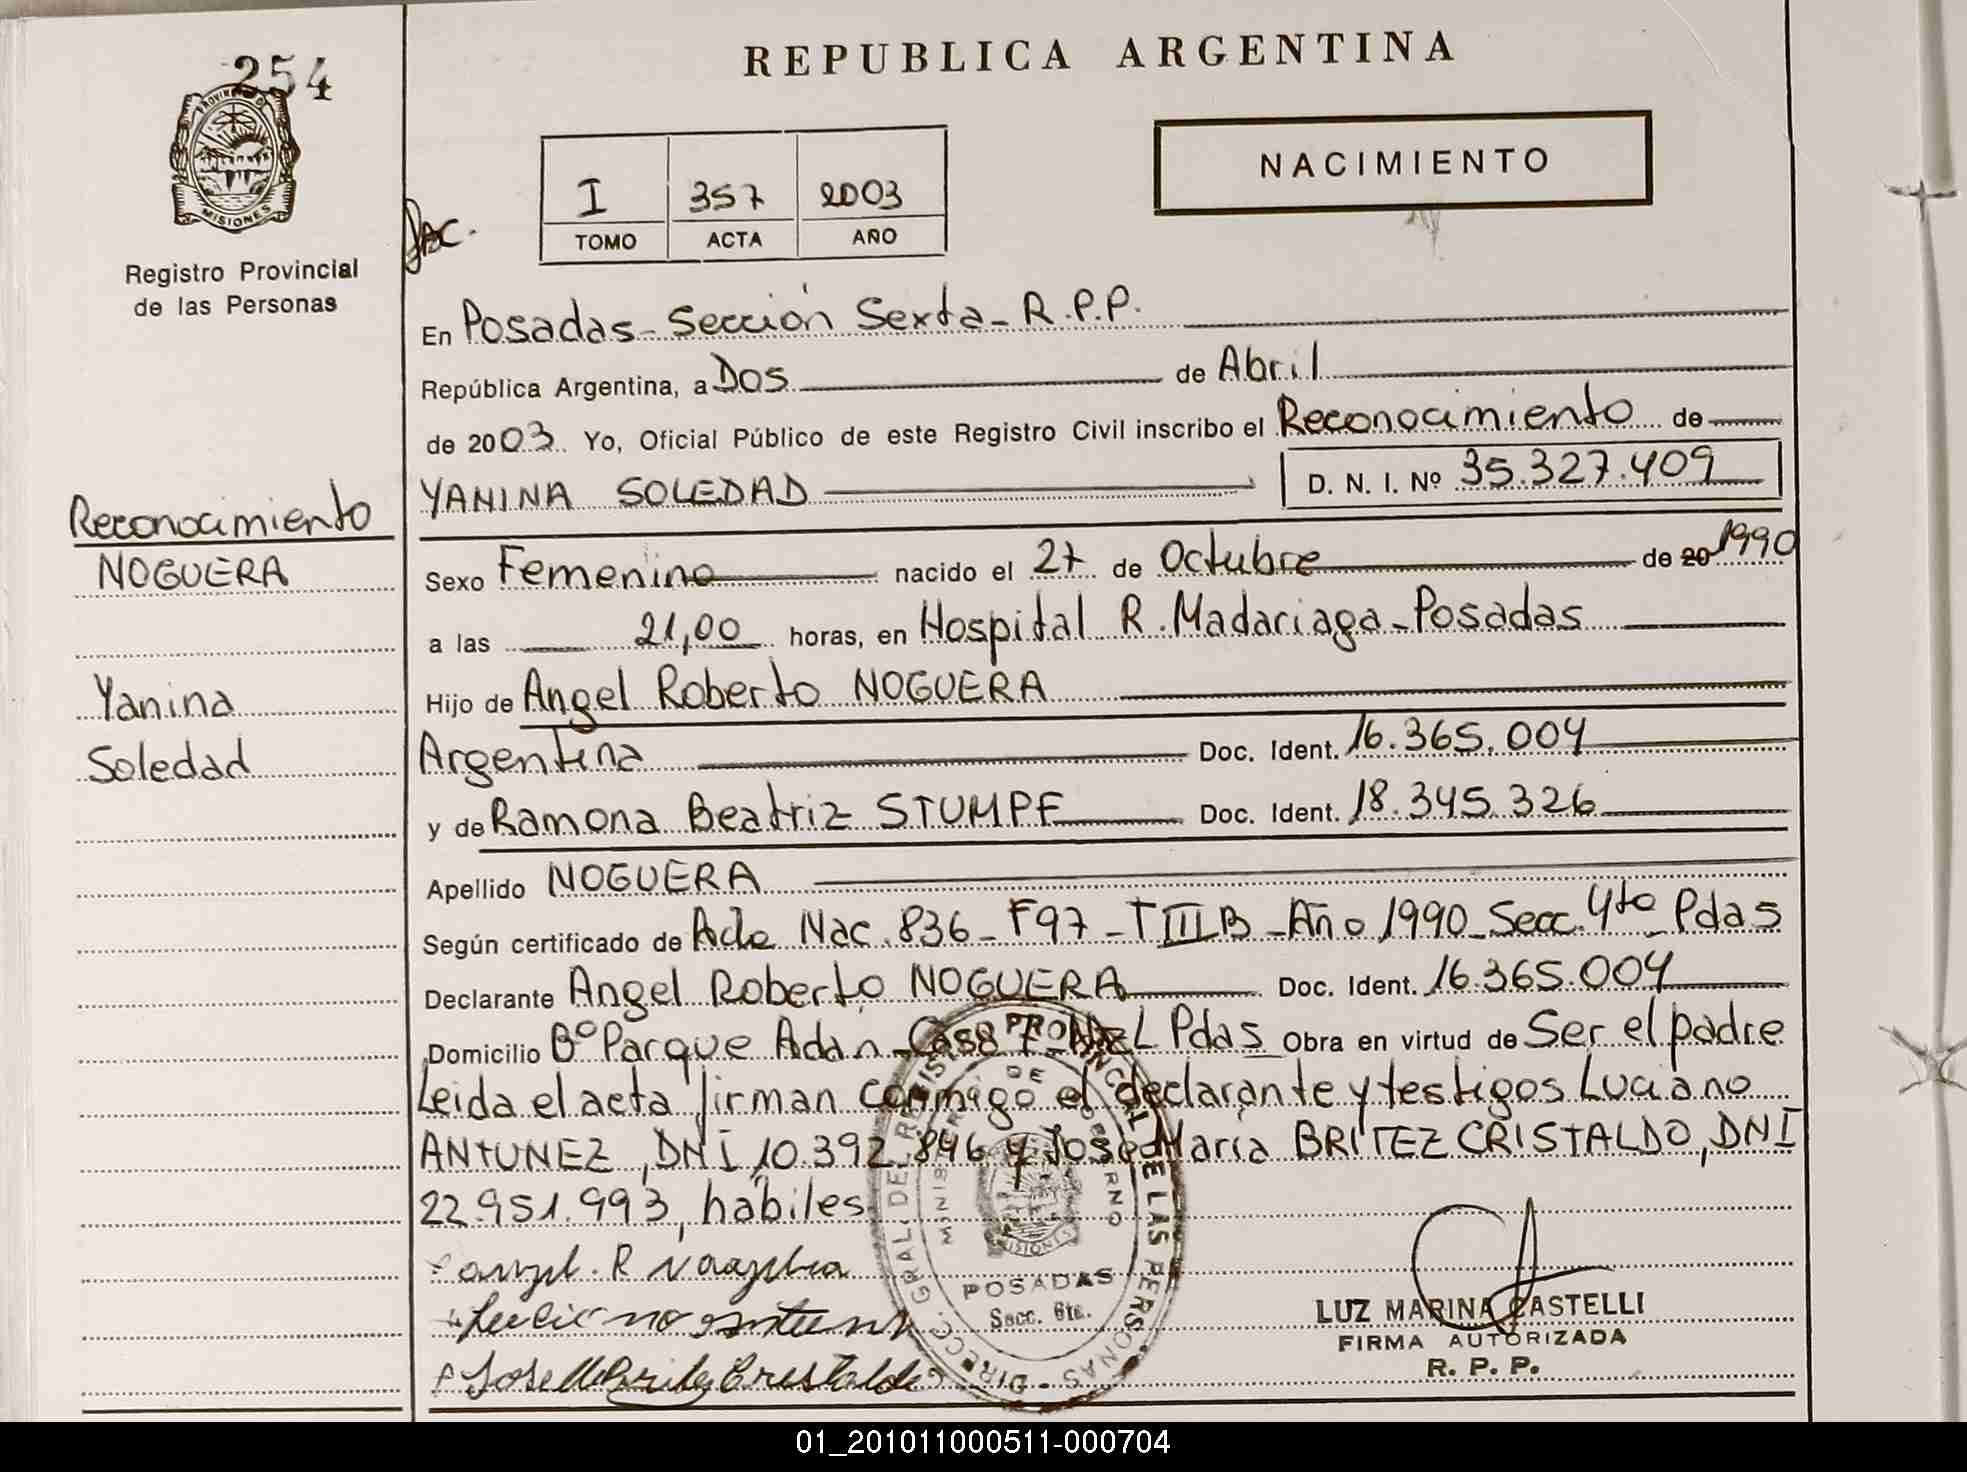 254
PROVINCIA DE
MISIONES
Registro Provincial
de las Personas
REPUBLICA ARGENTINA
NACIMIENTO
I 357 2003
TOMO ACTA AÑO
En Posadas - Sección Sexta - R.P.P.
República Argentina, a Dos de Abril
de 2003. Yo, Oficial Público de este Registro Civil inscribo el Reconocimiento de
YANINA SOLEDAD D. N. I. Nº 35.327.409
Reconocimiento
NOGUERA
Yanina
Soledad
Sexo Femenino nacido el 27 de Octubre de 20 1990
a las 21,00 horas, en Hospital R. Madariaga - Posadas
Hijo de Angel Roberto NOGUERA
Argentina Doc. Ident. 16.365.004
y de Ramona Beatriz STUMPF Doc. Ident. 18.345.326
Apellido NOGUERA
Según certificado de Acta Nac. 836 - F97 - TIIIB - Año 1990 - Secc. 4ta Pdas
Declarante Angel Roberto NOGUERA Doc. Ident. 16.365.004
Domicilio Bº Parque Adán - Cas8 Pdas Obra en virtud de Ser el padre
Leida el acta firman conmigo el declarante y testigos Luciano
ANTUNEZ, DNI 10.392.846 y José María BRITEZ CRISTALDO, DNI
22.951.993, hábiles
DIRECC. GRAL. DEL REGISTRO PROVINCIAL DE LAS PERSONAS
MINISTERIO DE GOBIERNO
MISIONES
POSADAS
Secc. 6ta.
LUZ MARINA CASTELLI
FIRMA AUTORIZADA
R. P. P.
01_201011000511-000704